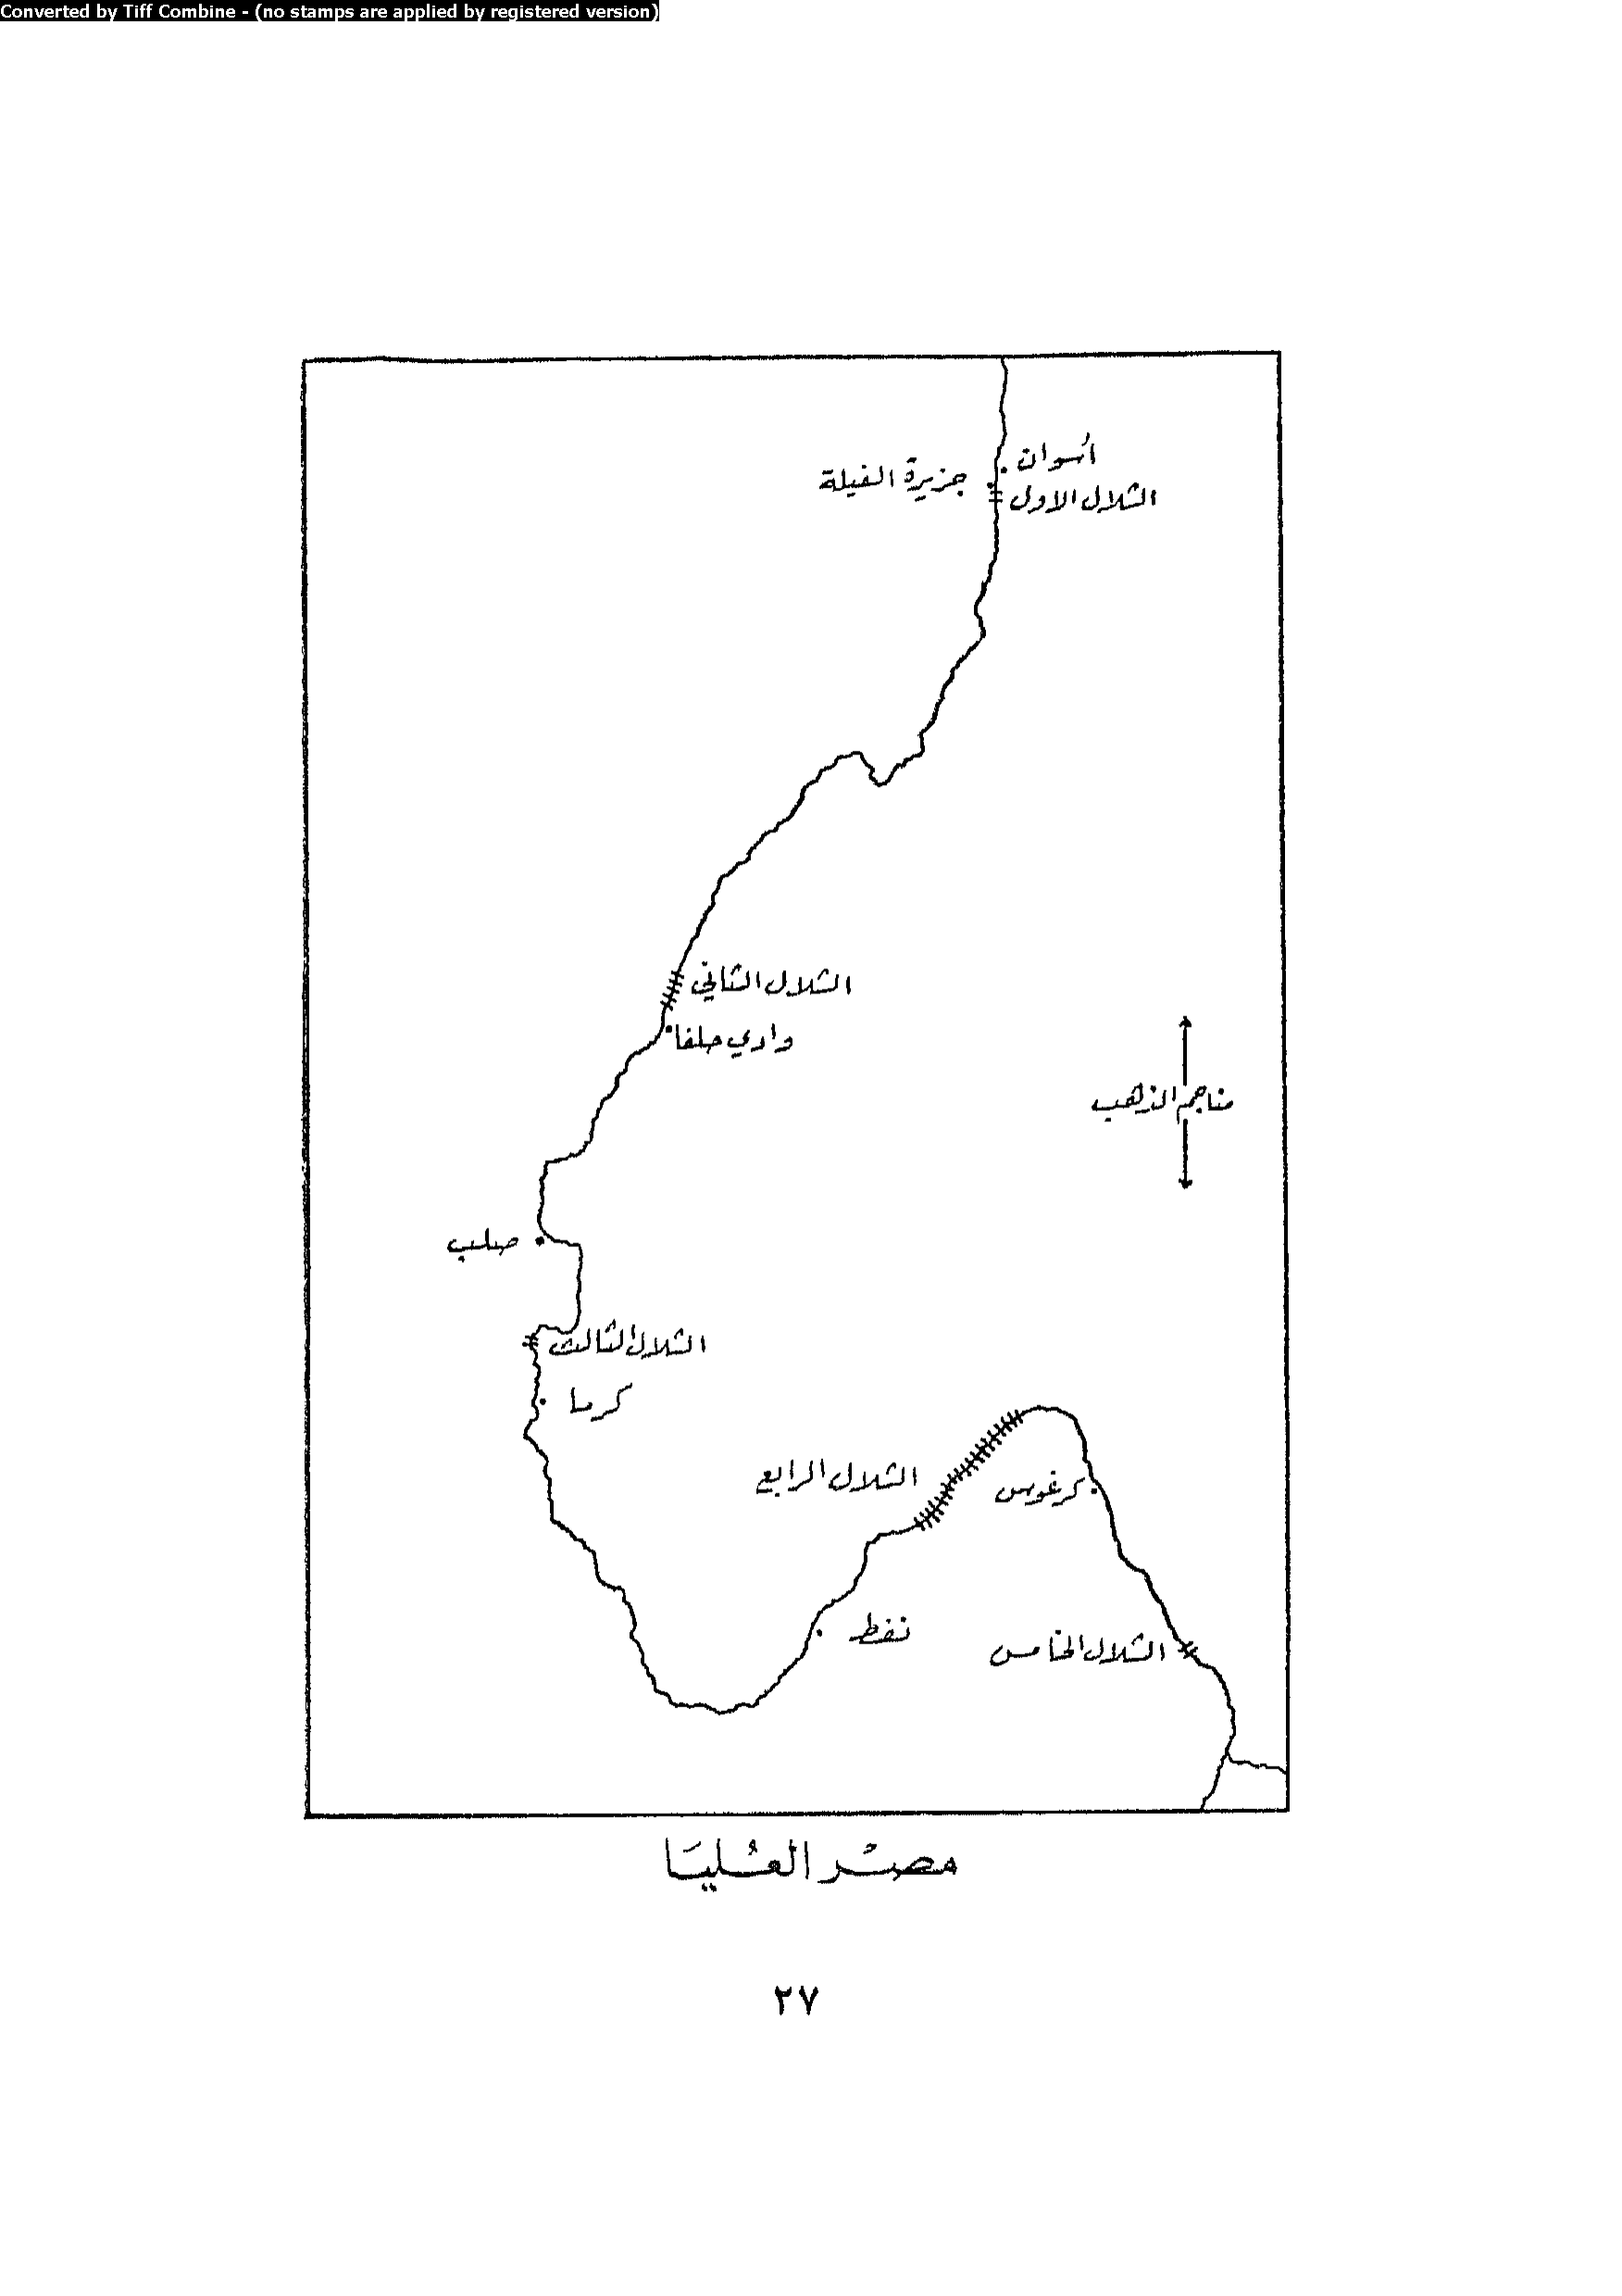 Converted by Tiff Combine - (no stamps are applied by registered version)
أسوان
جزيرة الفيلة
الشلال الاول
الشلال الثاني
وادي حلفا
مناجم الذهب
صلب
الشلال الثالث
كرما
الشلال الرابع
كرغوس
نفط
الشلال الخامس
مصْر العُليَا
٢٧